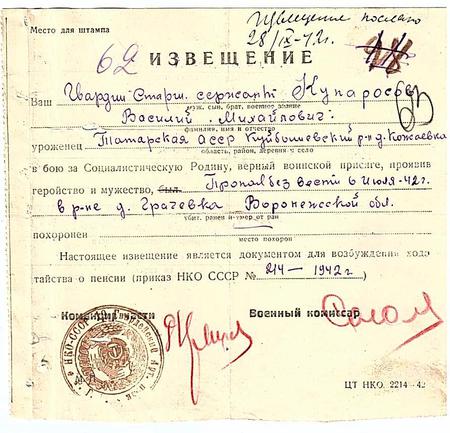 Место для штампа
Извещение послано
28/IX-42г.
62
ИЗВЕЩЕНИЕ
Ваш Гвардии-Старш. сержант Купаросов
муж, сын, брат, военное звание
Василий Михайлович
63
фамилия, имя и отчество
уроженец Татарская асср Куйбышевский р-н д. Кожаевка
область, район, деревня и село
в бою за Социалистическую Родину, верный воинской присяге, проявив
геройство и мужество, был. Пропал без вести 6 Июля-42г.
в р-не д. Грачевка Воронежской обл.
убит, ранен и умер от ран
похоронен
место похорон
Настоящее извещение является документом для возбуждения хода
тайства о пенсии (приказ НКО СССР № 214-1942г
Командир части
Военный комиссар
НКО-СССР
ЦТ НКО. 2214-42